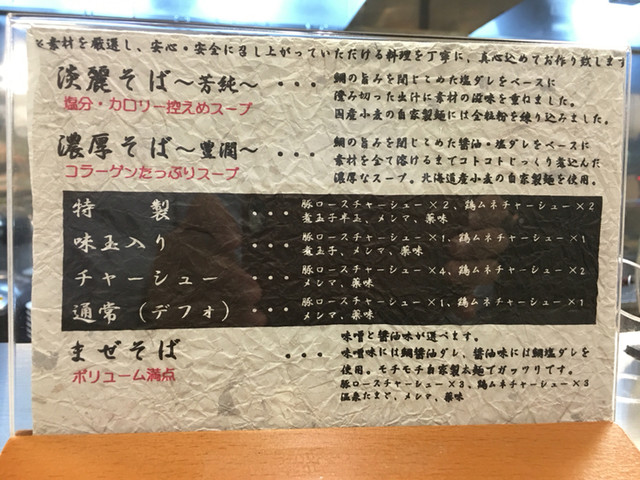 ※素材を厳選し、安心・安全に召し上がっていただける料理を丁寧に、真心込めてお作り致します
淡麗そば〜芳純〜 ・・・ 鯛の旨みを閉じこめた塩ダレをベースに
塩分・カロリー控えめスープ 澄み切った出汁に素材の滋味を重ねました。
国産小麦の自家製麺には全粒粉を練り込みました。
濃厚そば〜豊潤〜 ・・・ 鯛の旨みを閉じこめた醤油・塩ダレをベースに
コラーゲンたっぷりスープ 素材を全て溶けるまでコトコトじっくり煮込んだ
濃厚なスープ。北海道産小麦の自家製麺を使用。
特製 ・・・ 豚ロースチャーシュー×2、鶏ムネチャーシュー×2
煮玉子半玉、メンマ、薬味
味玉入り ・・・ 豚ロースチャーシュー×1、鶏ムネチャーシュー×1
煮玉子、メンマ、薬味
チャーシュー ・・・ 豚ロースチャーシュー×4、鶏ムネチャーシュー×2
メンマ、薬味
通常(デフォ) ・・・ 豚ロースチャーシュー×1、鶏ムネチャーシュー×1
メンマ、薬味
まぜそば ・・・ 味噌と醤油味が選べます。
ボリューム満点 味噌味には鯛醤油ダレ、醤油味には鯛塩ダレを
使用。モチモチ自家製太麺でガッツリです。
豚ロースチャーシュー×3、鶏ムネチャーシュー×3
温泉たまご、メンマ、薬味